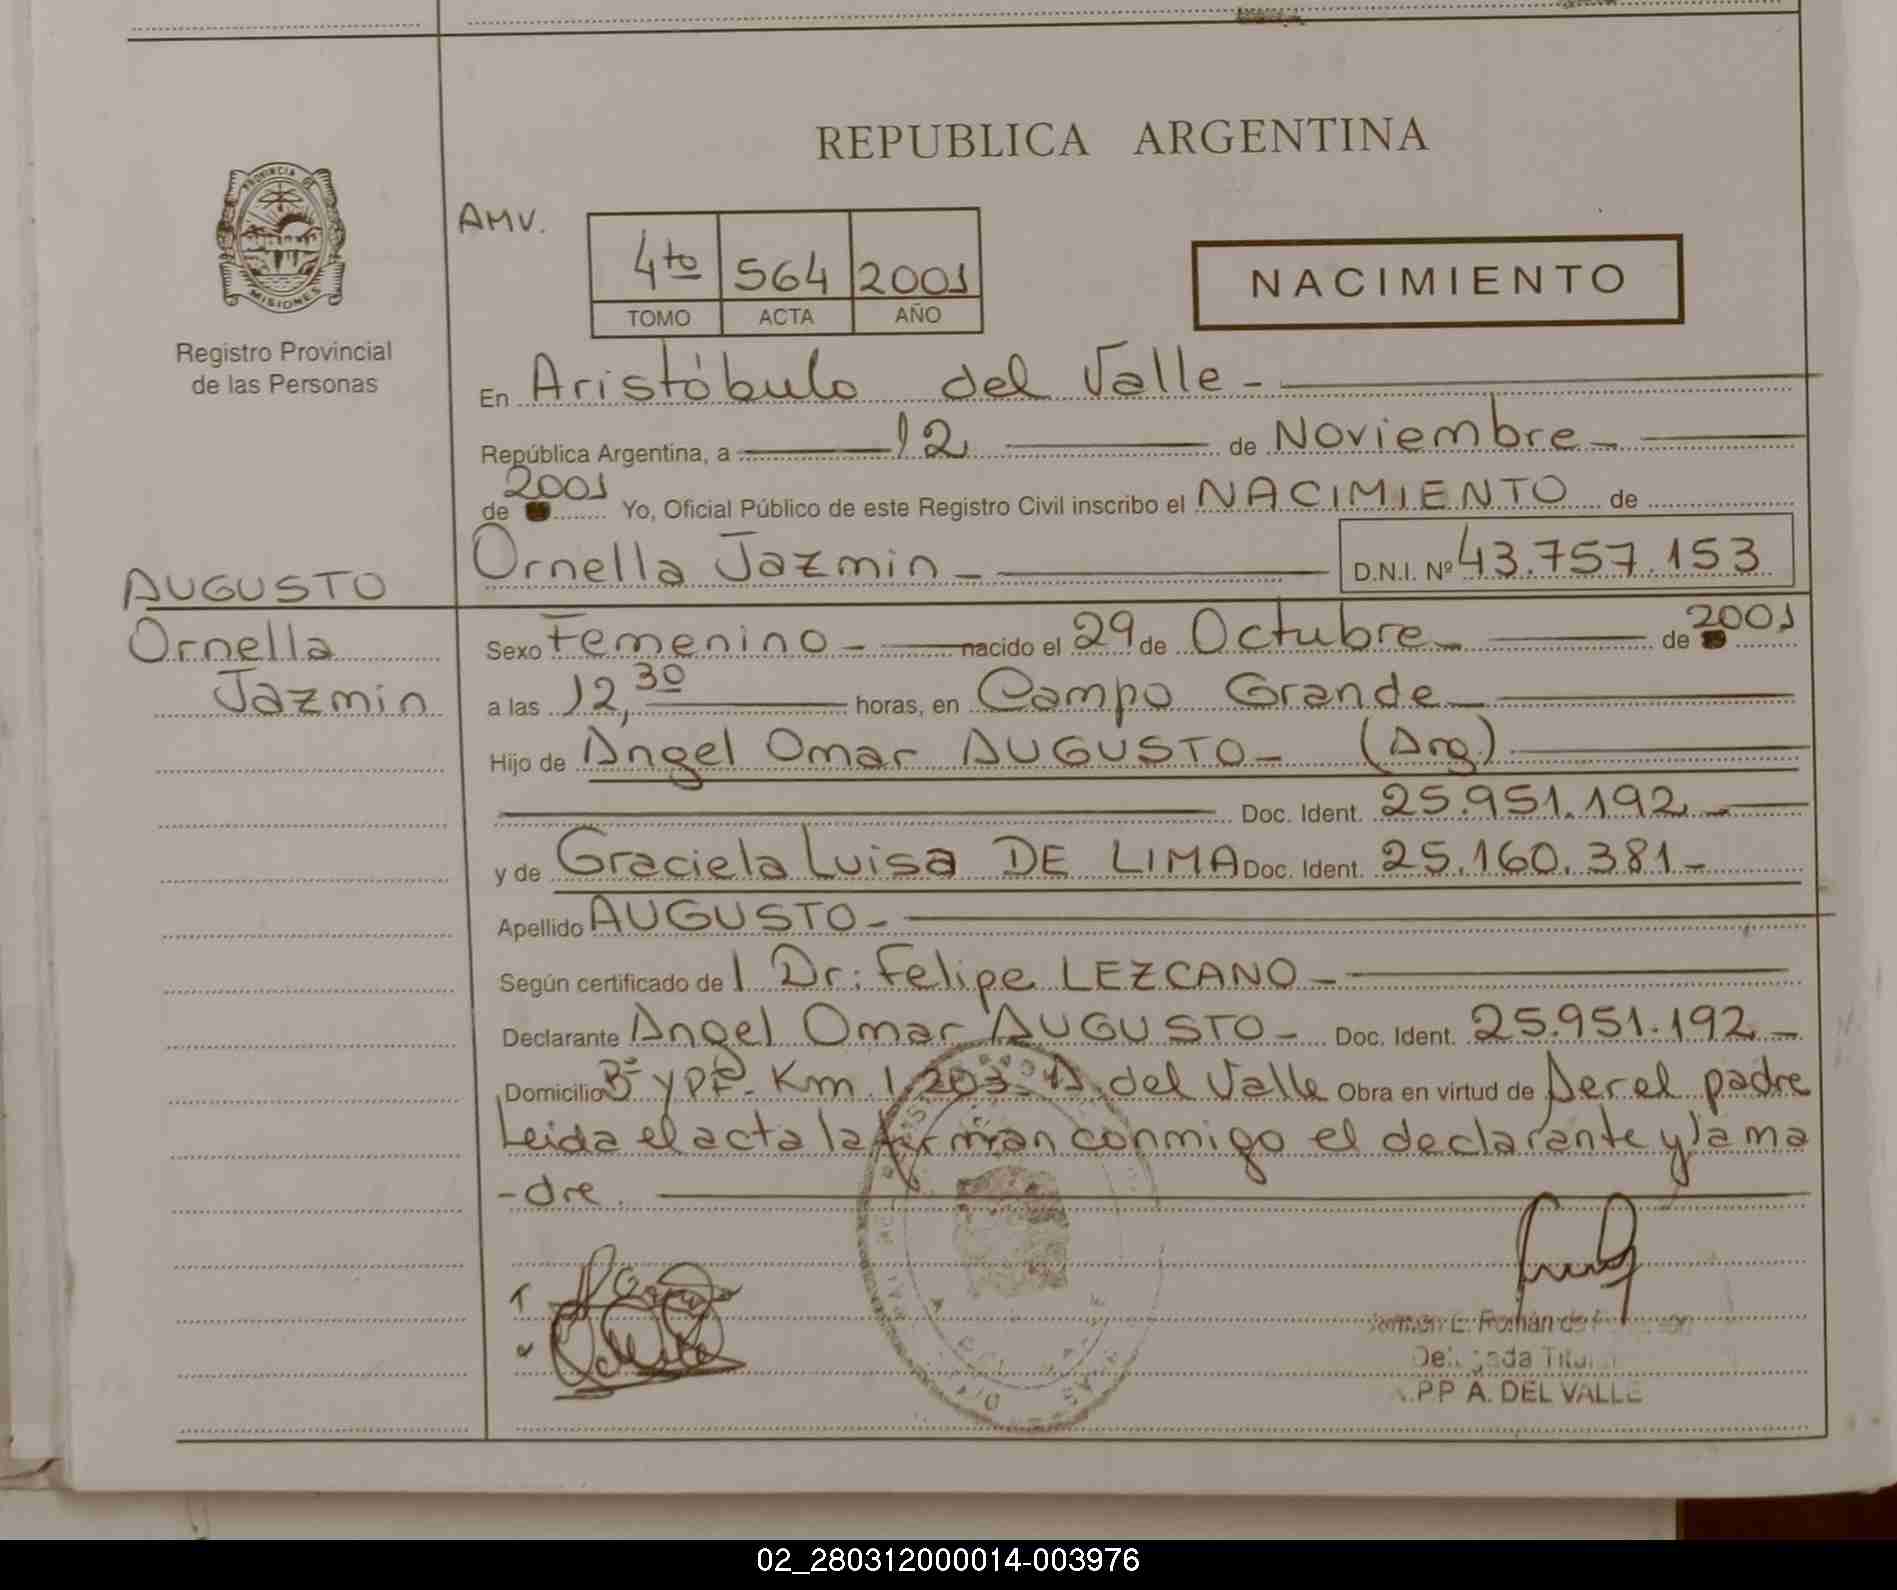 REPUBLICA ARGENTINA
PROVINCIA DE
MISIONES
Registro Provincial
de las Personas
AMV.
4to 564 2001
TOMO ACTA AÑO
NACIMIENTO
En Aristóbulo del Valle -
República Argentina, a 12 de Noviembre -
de 2001 Yo, Oficial Público de este Registro Civil inscribo el NACIMIENTO de
Ornella Jazmin - D.N.I. Nº 43.757.153
AUGUSTO
Ornella
Jazmin
Sexo Femenino - nacido el 29 de Octubre - de 2001
a las 12,30 horas, en Campo Grande -
Hijo de Angel Omar AUGUSTO - (Arg.)
Doc. Ident. 25.951.192 -
y de Graciela Luisa DE LIMA Doc. Ident. 25.160.381 -
Apellido AUGUSTO -
Según certificado de l Dr: Felipe LEZCANO -
Declarante Angel Omar AUGUSTO - Doc. Ident. 25.951.192 -
Domicilio Bº YPF - Km 1.203 - A. del Valle Obra en virtud de Ser el padre
Leida el acta la firman conmigo el declarante y la ma
-dre.
Román de
Titular
A. DEL VALLE
02_280312000014-003976